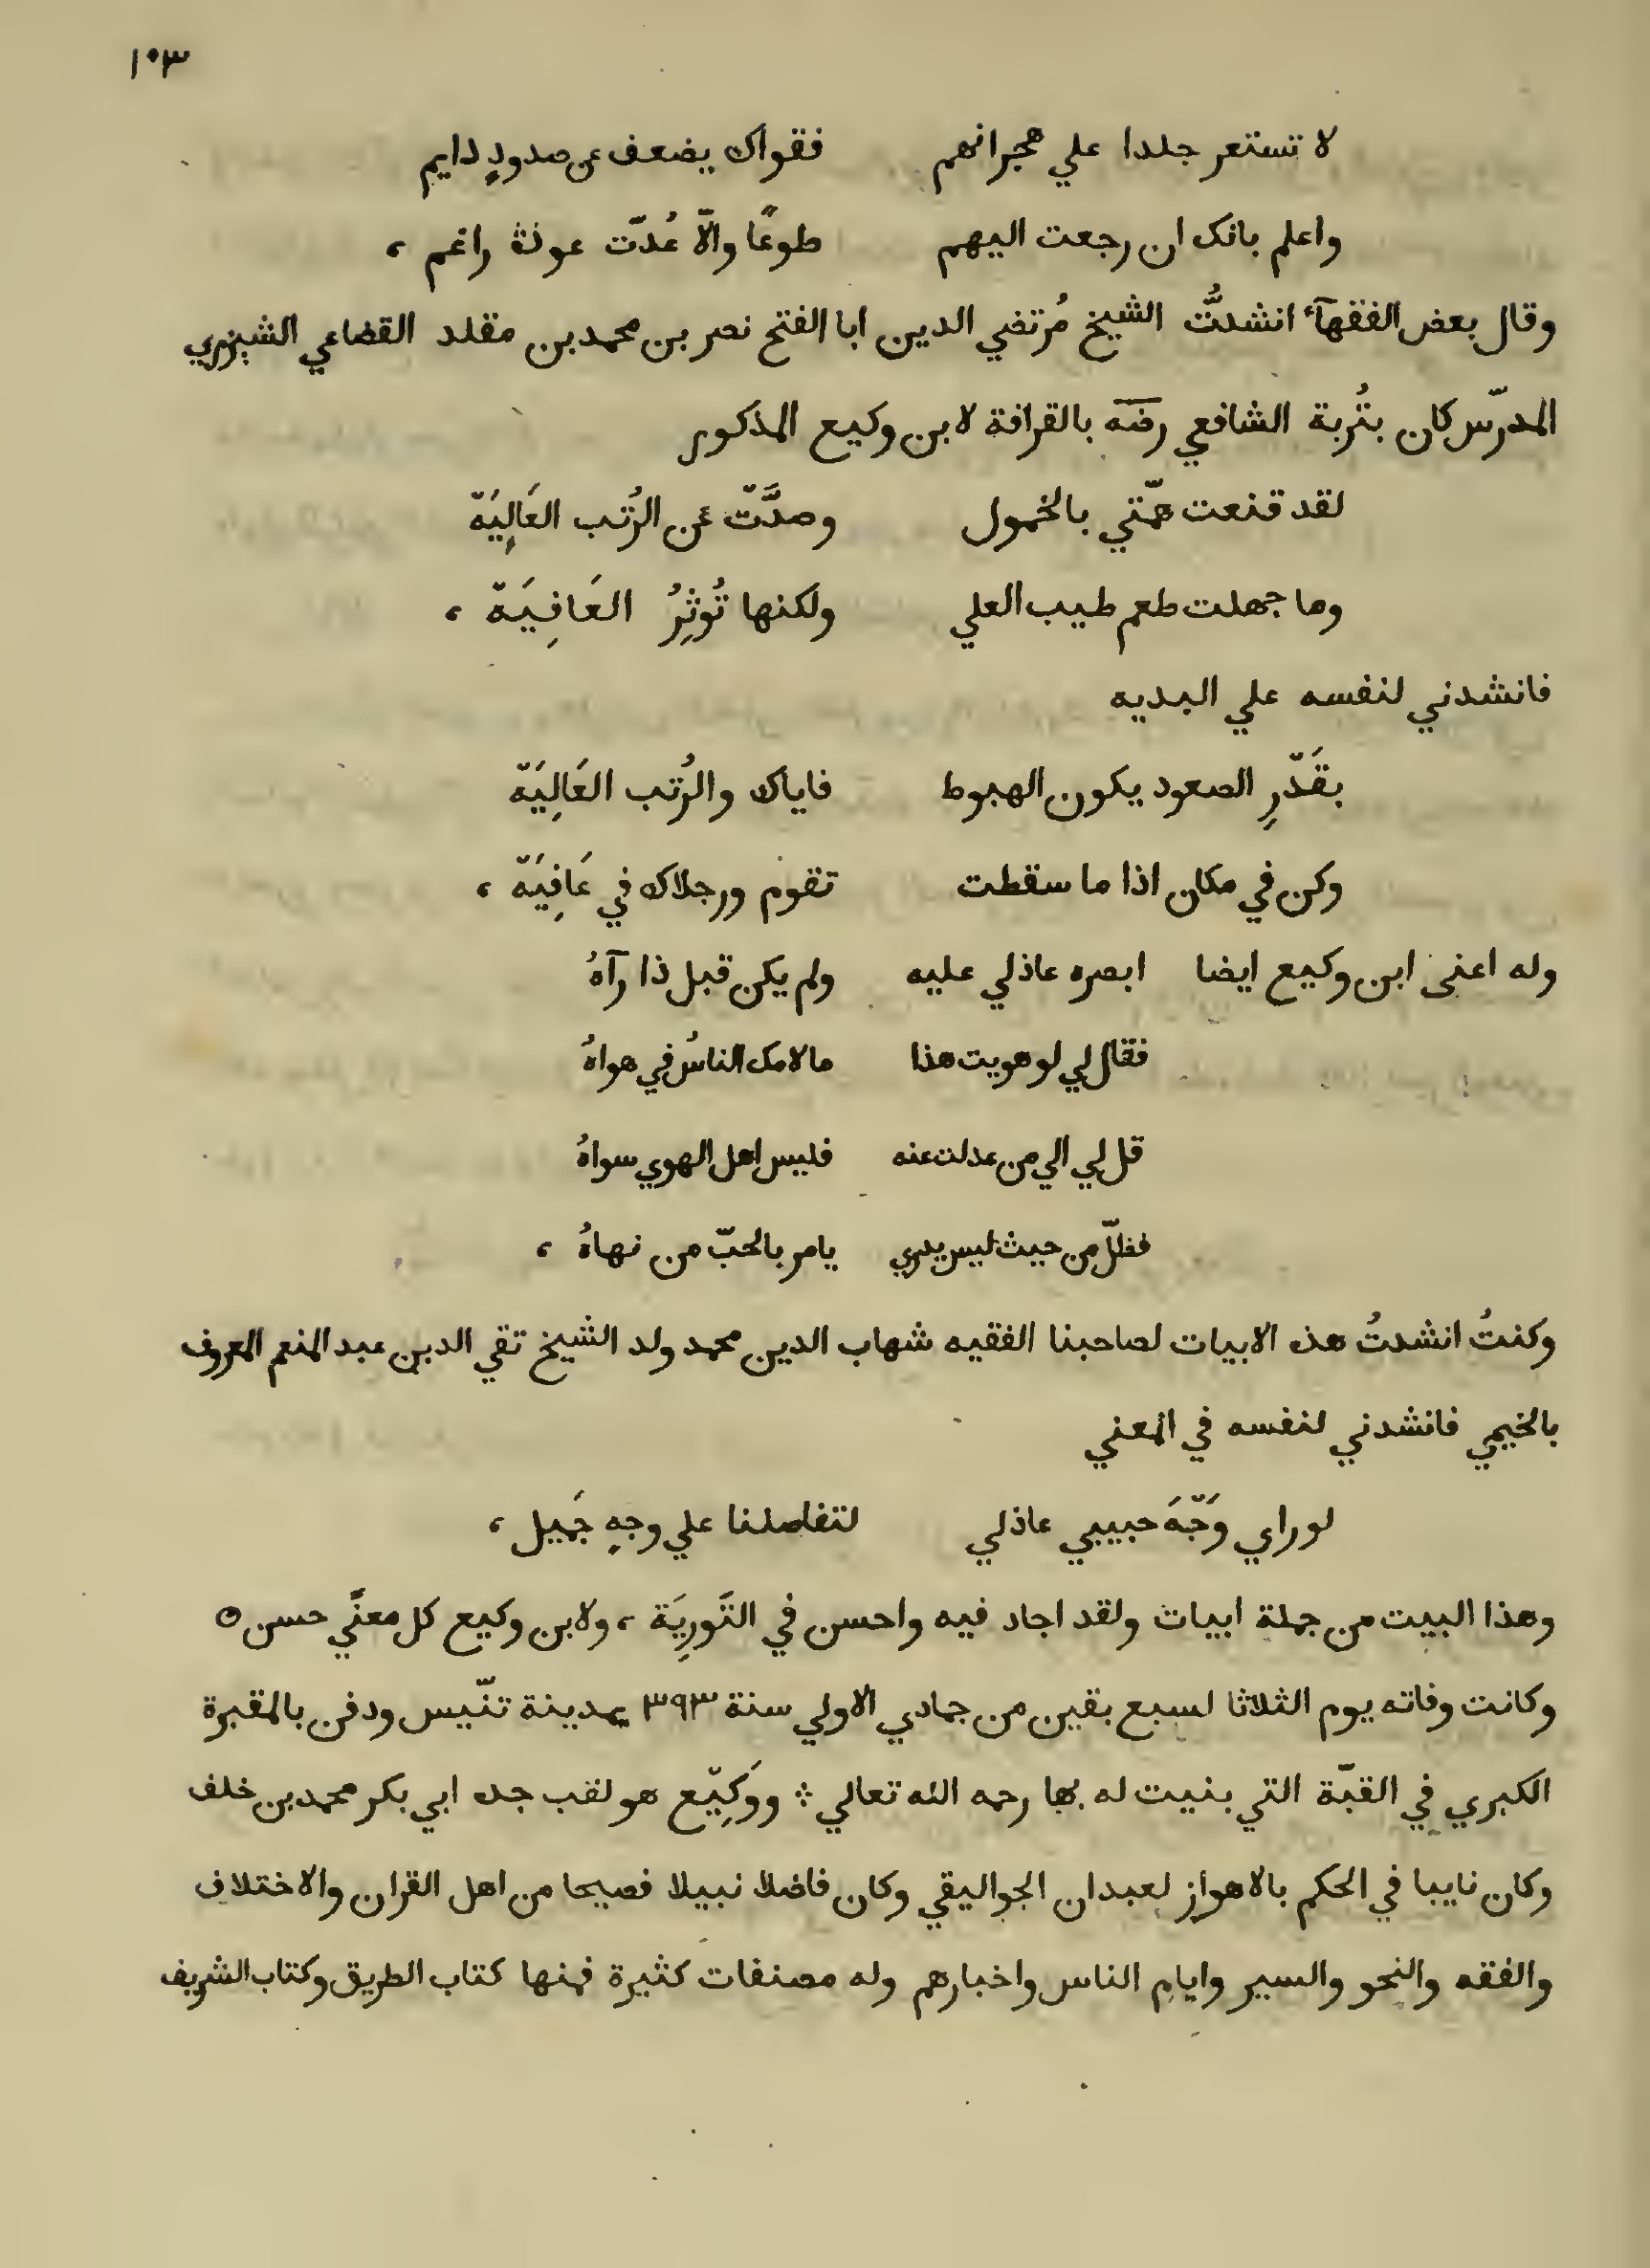 ١٠٣
لا تستعر جلدا علي هجرانهم فقواك يضعف عن صدودٍ دايم
واعلم بانك ان رجعت اليهم طوعًا والّا عُدتّ عودة راغم ،
وقال بعض الفقهآء انشدتُّ الشيخ مُرتضي الدين ابا الفتح نصر بن محمد بن مقلد القضاعي الشيزري
المدرّس كان بتُربة الشافعي رضّه بالقرافة لابن وكيع المذكور
لقد قنعت همّتي بالخمول وصدَّتْ عن الرُتب العَالِيَهْ
وما جهلت طعم طيب العلي ولكنها تُوثِرُ العَافِيَهْ ،
فانشدني لنفسه علي البديه
بقَدْرِ الصعود يكون الهبوط فاياك والرُتب العَالِيَهْ
وكن في مكان اذا ما سقطت تقوم ورجلاك في عَافِيَهْ ،
وله اعنى ابن وكيع ايضا ابصره عاذلي عليه ولم يكن قبل ذا رآهُ
فقال لي لو هويت هذا ما لامك الناسُ في هواهُ
قل لي الي من عدلت عنه فليس اهل الهوي سواهُ
فظلّ من حيث ليس يدري يامر بالحبّ من نهاهُ ،
وكنتُ انشدتُ هذه الابيات لصاحبنا الفقيه شهاب الدين محمد ولد الشيخ تقي الدين عبد المنعم المعروف
بالخيمي فانشدني لنفسه في المعني
لو راي وَجْهَ حبيبي عاذلي لتفاصلنا علي وجهٍ جَميل ،
وهذا البيت من جملة ابيات ولقد اجاد فيه واحسن في التَورِيَة ، ولابن وكيع كل معنًي حسن ه
وكانت وفاته يوم الثلاثا لسبع بقين من جمادي الاولي سنة ٣٩٣ بمدينة تنّيس ودفن بالمقبرة
الكبري في القبّة التي بنيت له بها رحمه الله تعالي ⁘ ووَكِيْع هو لقب جده ابي بكر محمد بن خلف
وكان نايبا في الحكم بالاهواز لعبدان الجواليقي وكان فاضلا نبيلا فصيحا من اهل القران والاختلاف
والفقه والنحو والسير وايام الناس واخبارهم وله مصنفات كثيرة فمنها كتاب الطريق وكتاب الشريف